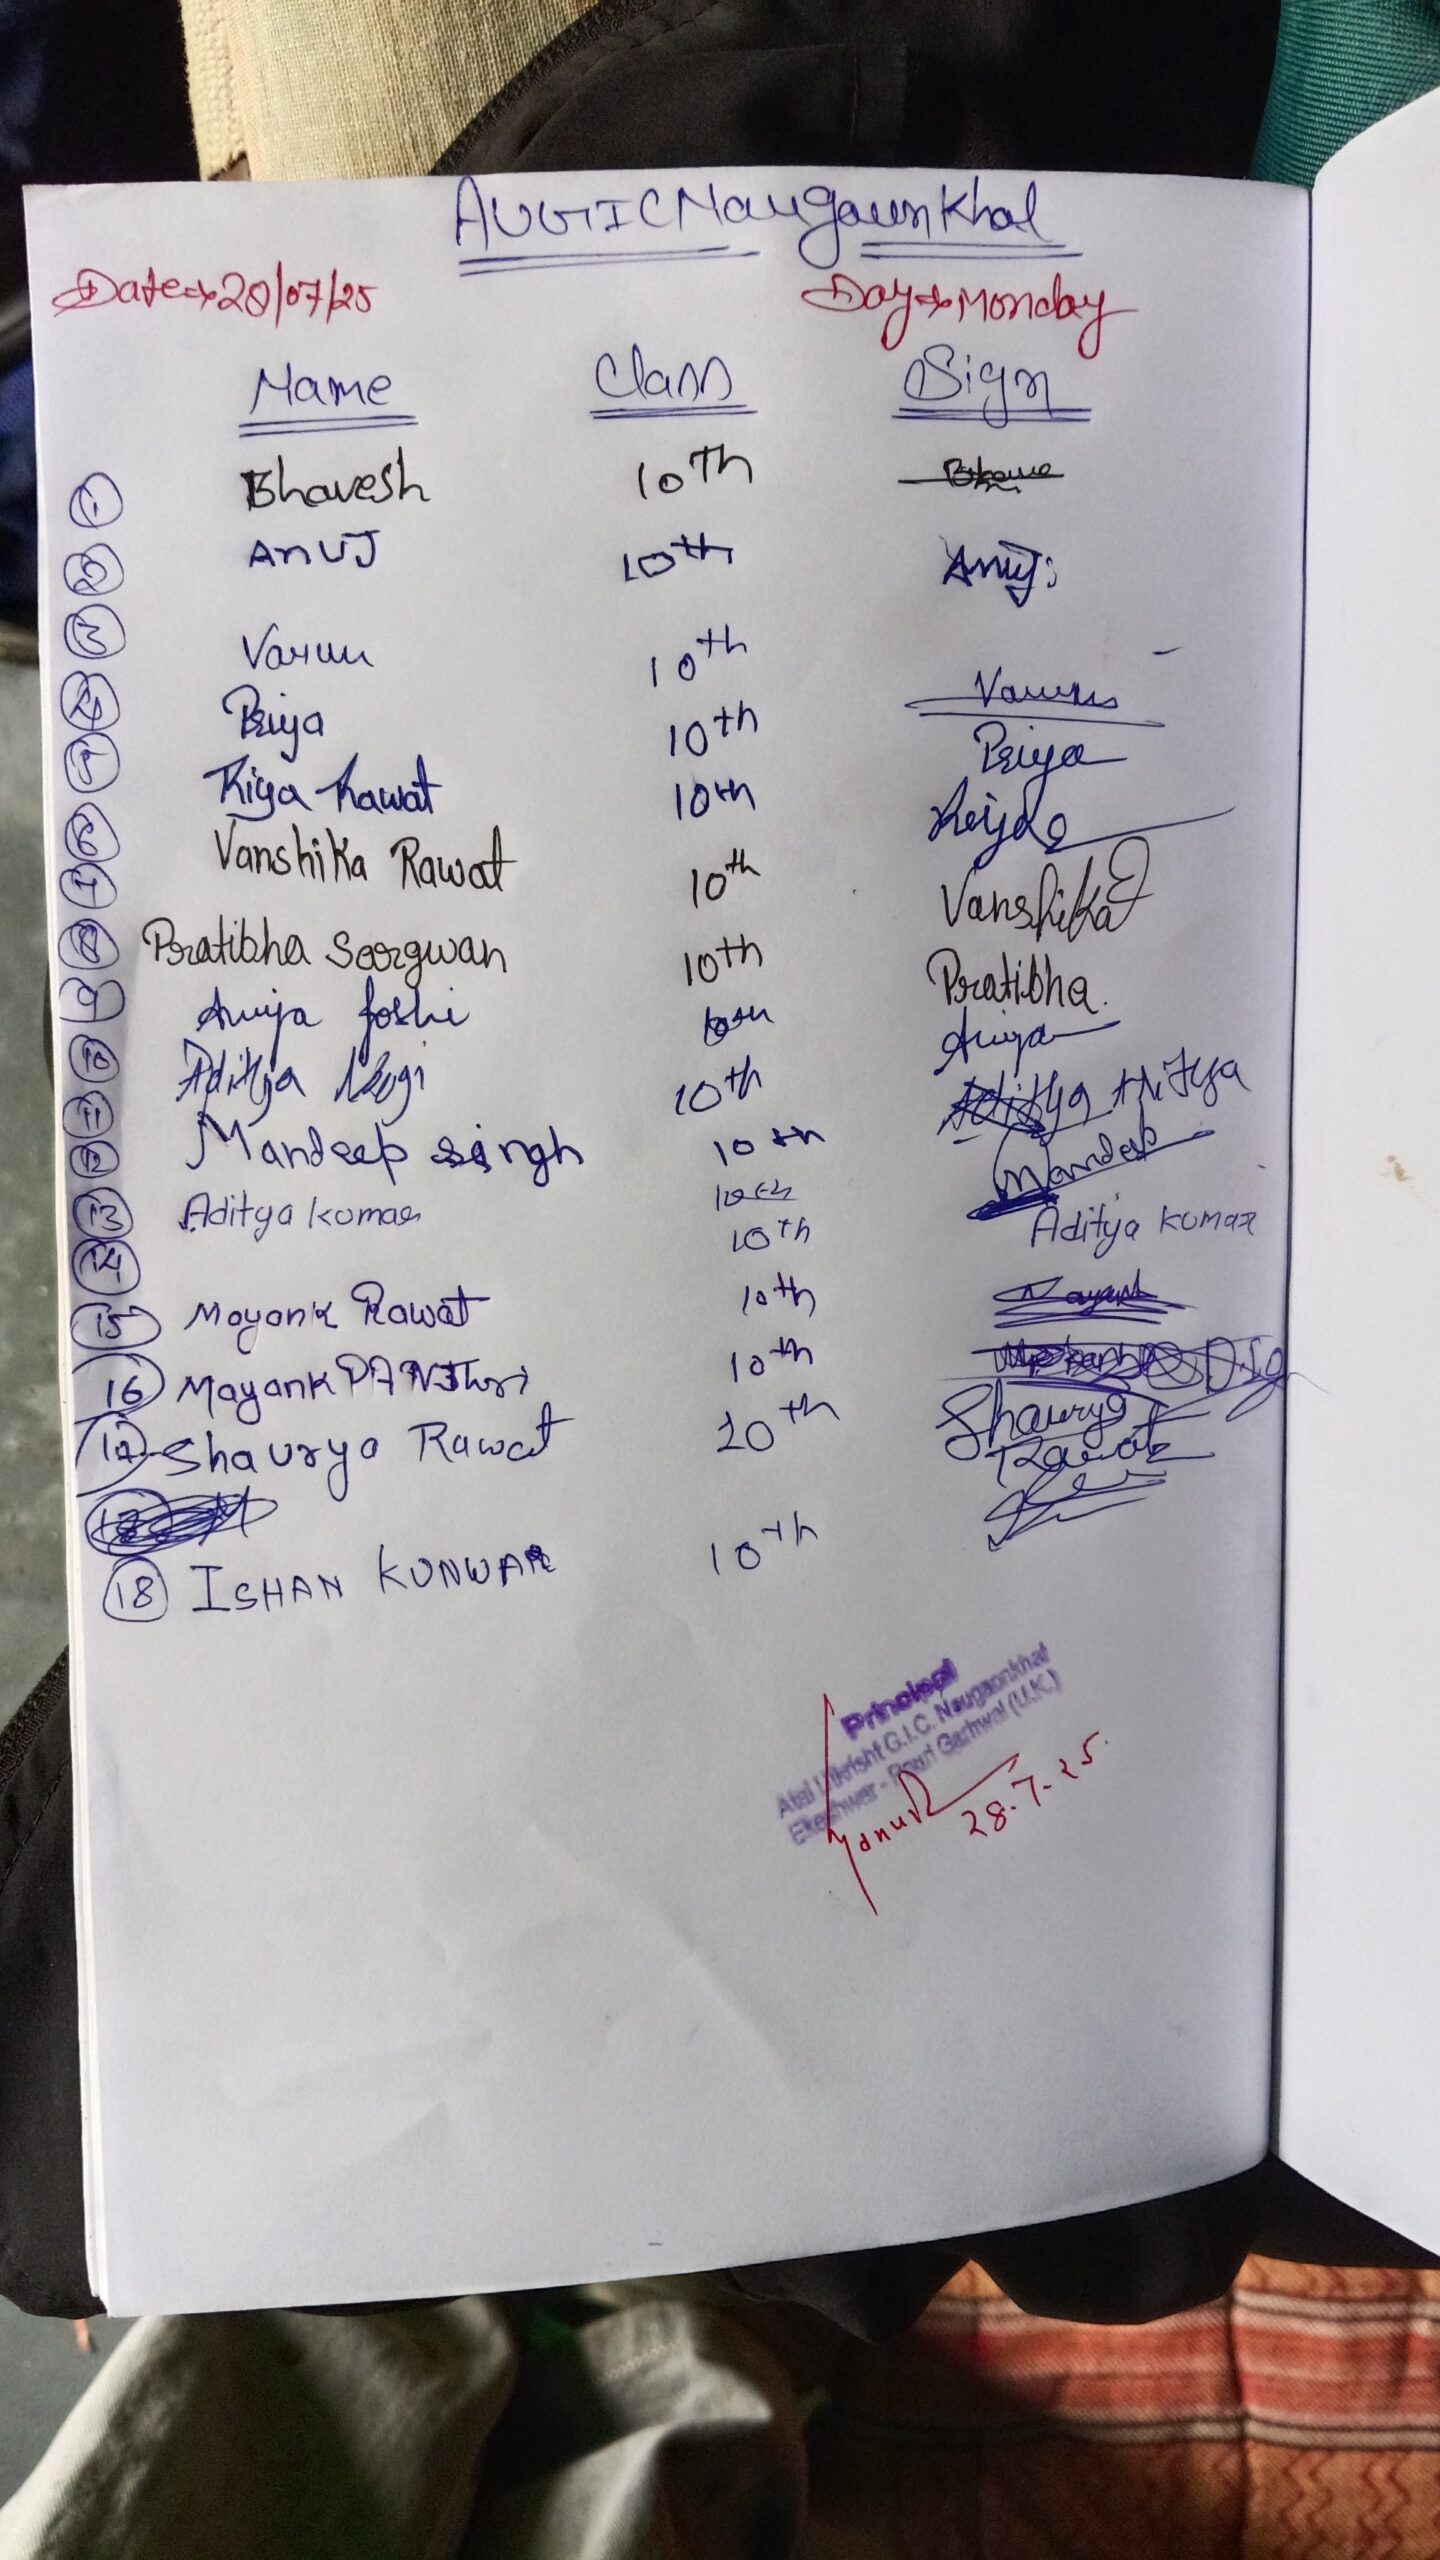 AUGIC Naugaunkhal
Date→28/07/25 Day→Monday
Name Class Sign
1 Bhavesh 10Th
2 AnUJ 10th Anuj
3 Varun 10th Varun
4 Priya 10th Priya
5 Riya Rawat 10th Reiya
6 Vanshika Rawat 10th Vanshika
7
8 Pratibha Sorgwan 10th Pratibha.
9 Anuja Joshi 10th Anuja
10 Aditya Negi 10th Aditya Aditya
11 Mandeep singh 10th Mandeep
12 10th
13 Aditya kumar 10th Aditya kumar
14
15 Mayank Rawat 10th Mayank
16 Mayank PANThri 10th
17 Shaurya Rawat 10th Shaurya
Rawat
18 ISHAN KUNWAR 10th
Principal
Atal Utkrisht G.I.C. Naugaonkhal
Ekeshwar - Pauri Garhwal (U.K.)
28.7.25.